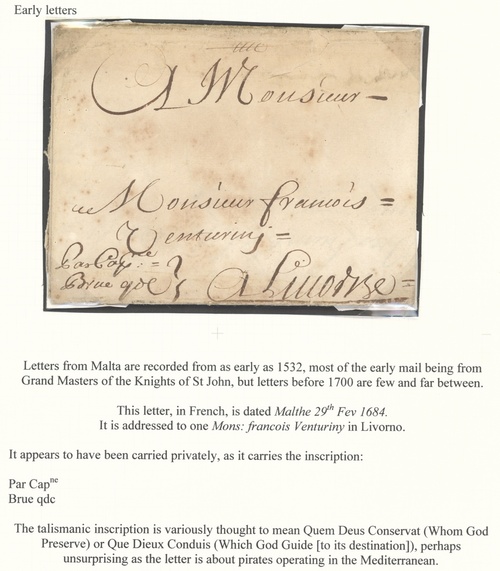 Early letters
A Monsieur
Monsieur francois =
Venturinj =
Par Capne =
Brue qdc
A Livorne =
Letters from Malta are recorded from as early as 1532, most of the early mail being from
Grand Masters of the Knights of St John, but letters before 1700 are few and far between.
This letter, in French, is dated Malthe 29th Fev 1684.
It is addressed to one Mons: francois Venturiny in Livorno.
It appears to have been carried privately, as it carries the inscription:
Par Capne
Brue qdc
The talismanic inscription is variously thought to mean Quem Deus Conservat (Whom God
Preserve) or Que Dieux Conduis (Which God Guide [to its destination]), perhaps
unsurprising as the letter is about pirates operating in the Mediterranean.